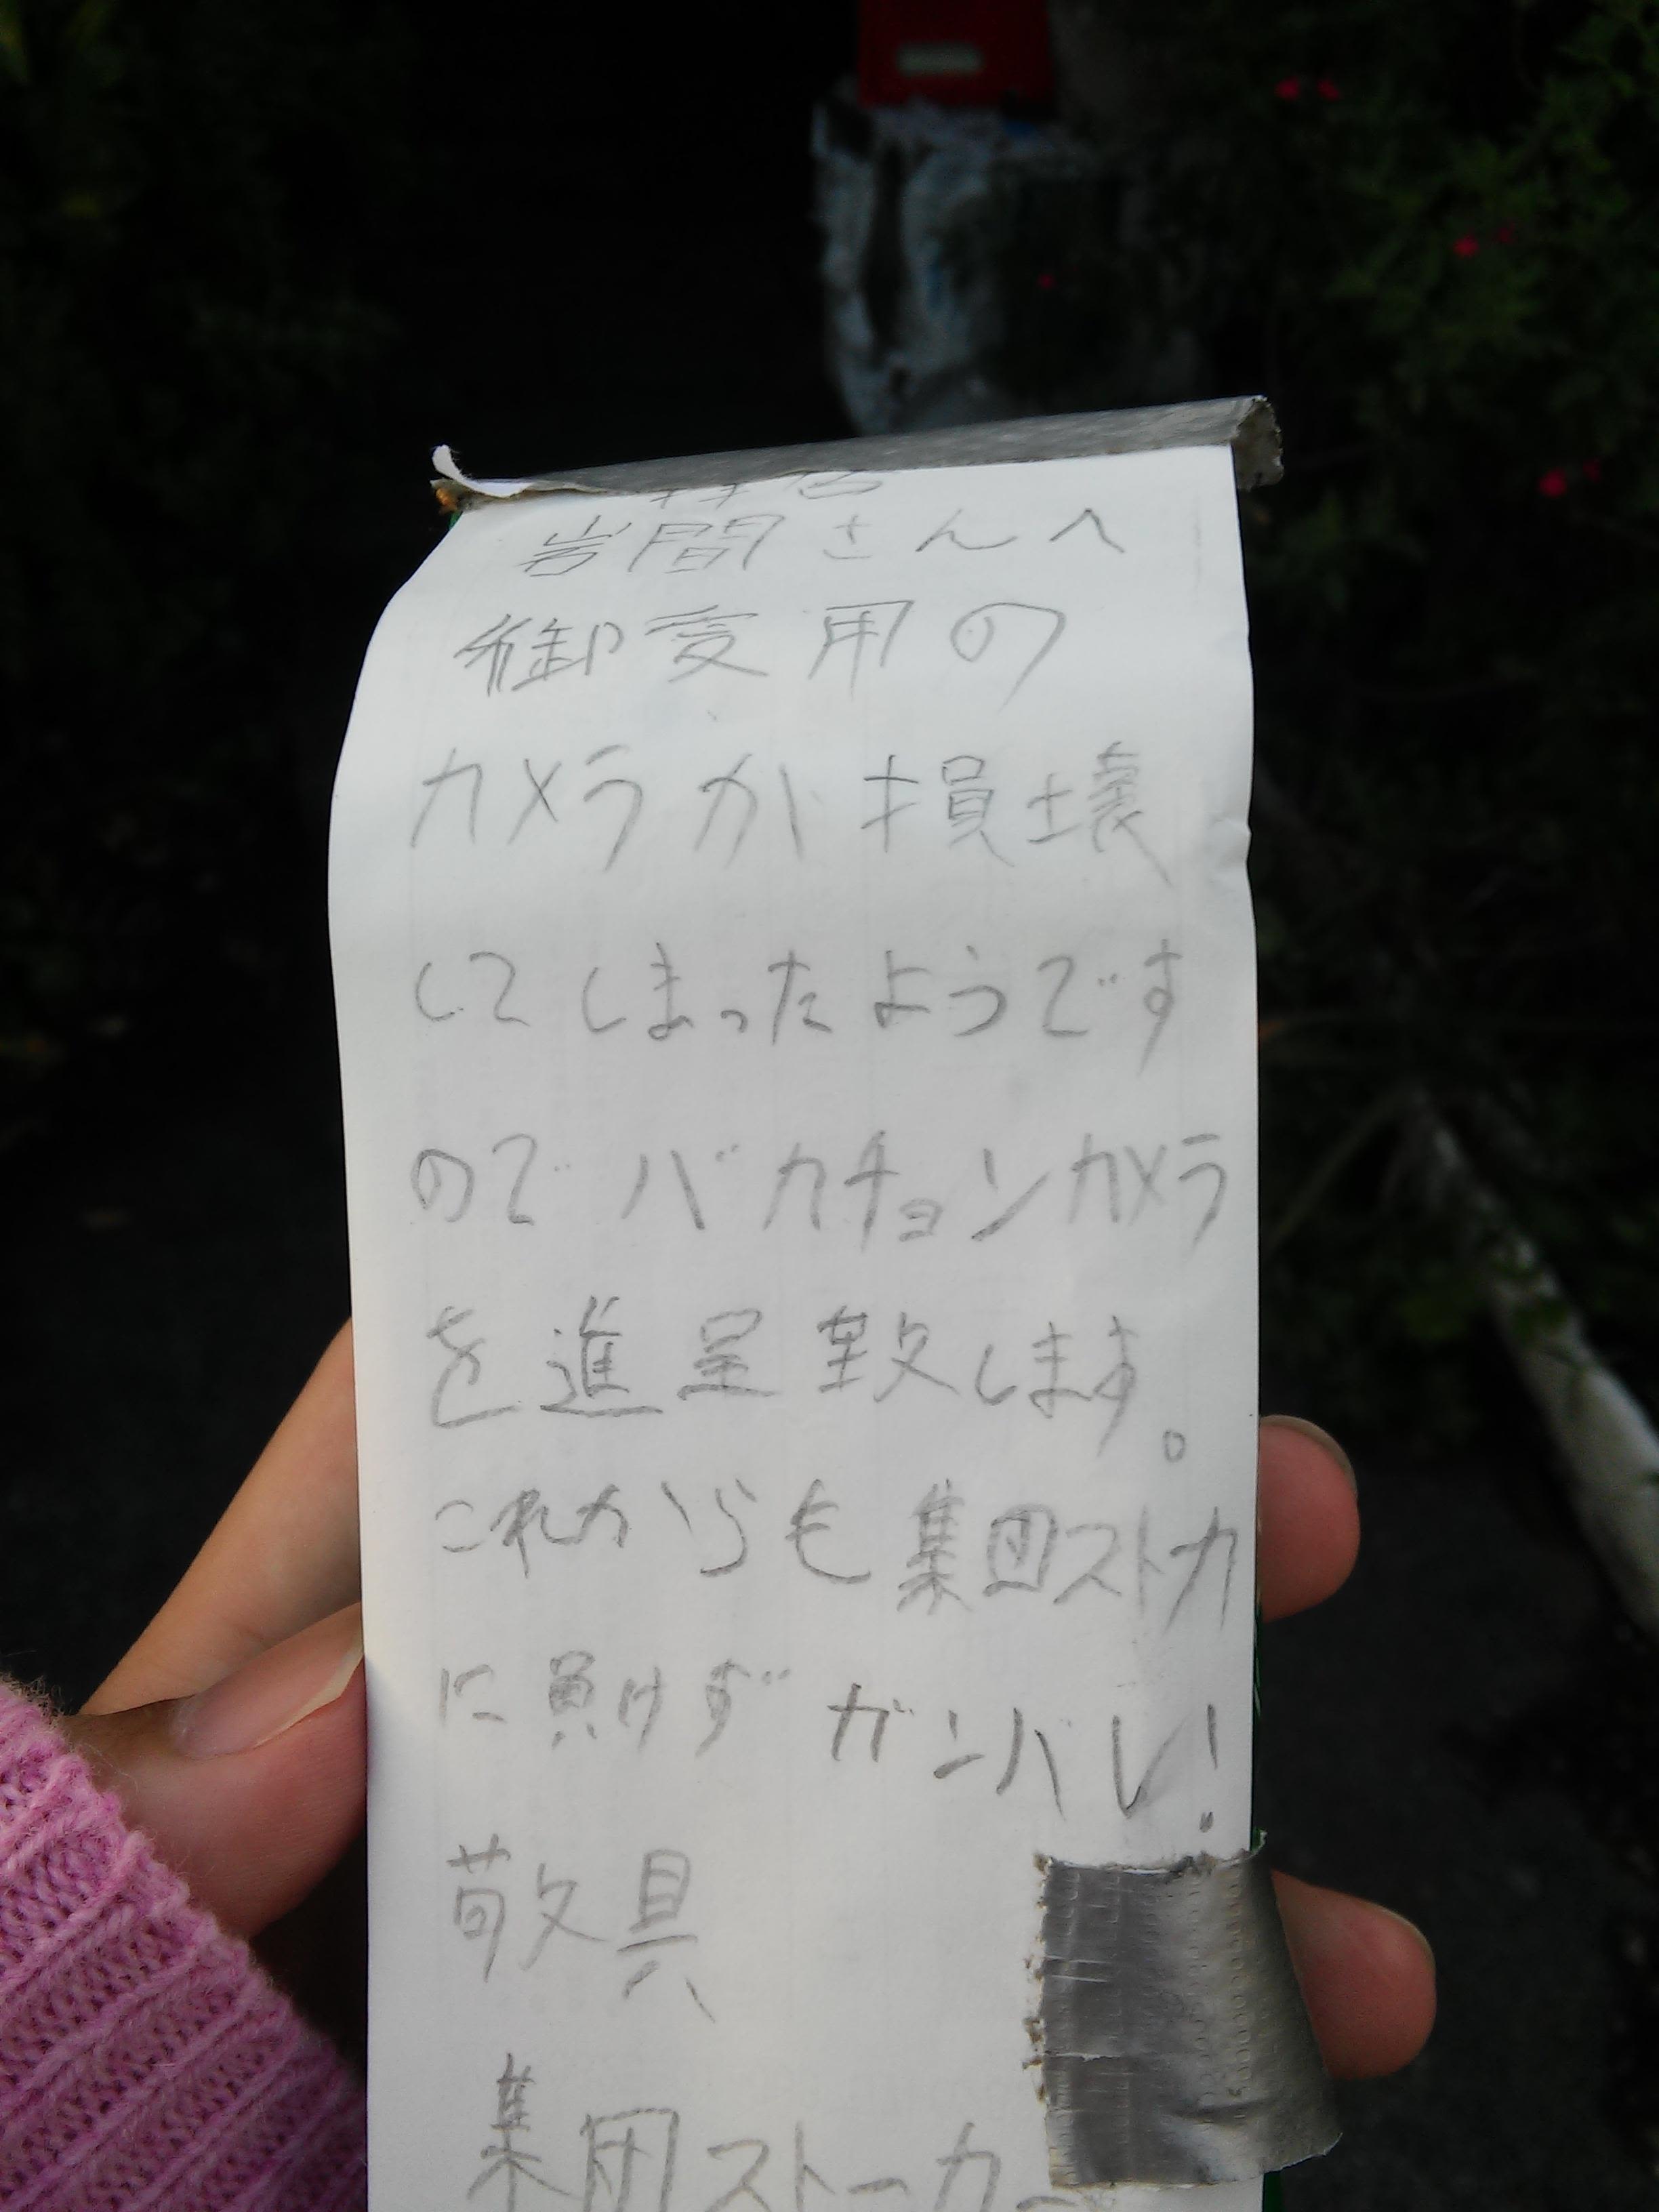 岩間さんへ
御愛用の
カメラが損壊
してしまったようです
のでバカチョンカメラ
を進呈致します。
これからも集団ストカ
に負けずガンバレ!
敬具
集団ストーカー